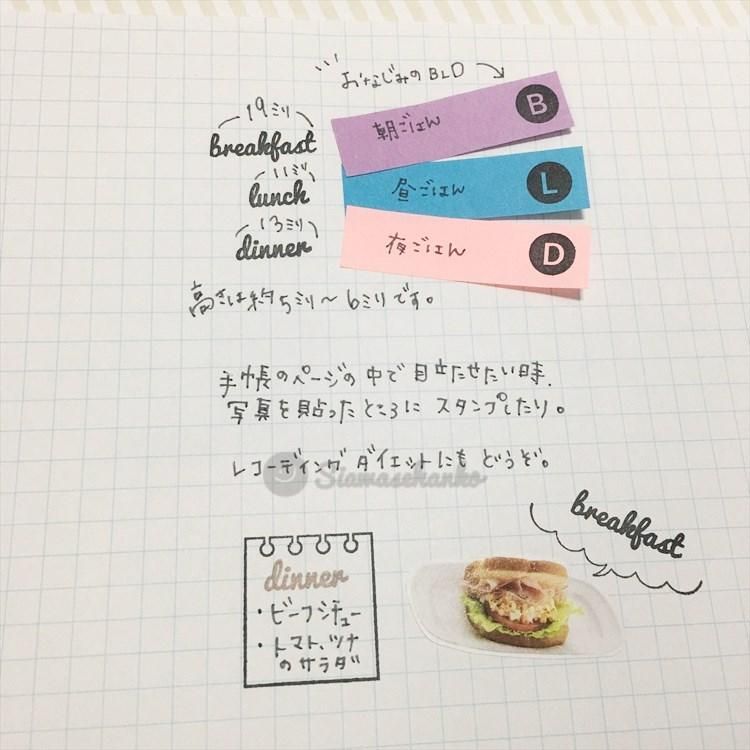 おなじみのBLD
19ミリ
breakfast
朝ごはん B
11ミリ
lunch
昼ごはん L
13ミリ
dinner
夜ごはん D
高さは約5ミリ〜6ミリです。
手帳のページの中で目立たせたい時、
写真を貼ったところにスタンプしたり。
レコーディングダイエットにもどうぞ。
Siawasehanko
breakfast
dinner
・ビーフシチュー
・トマト、ツナ
のサラダ